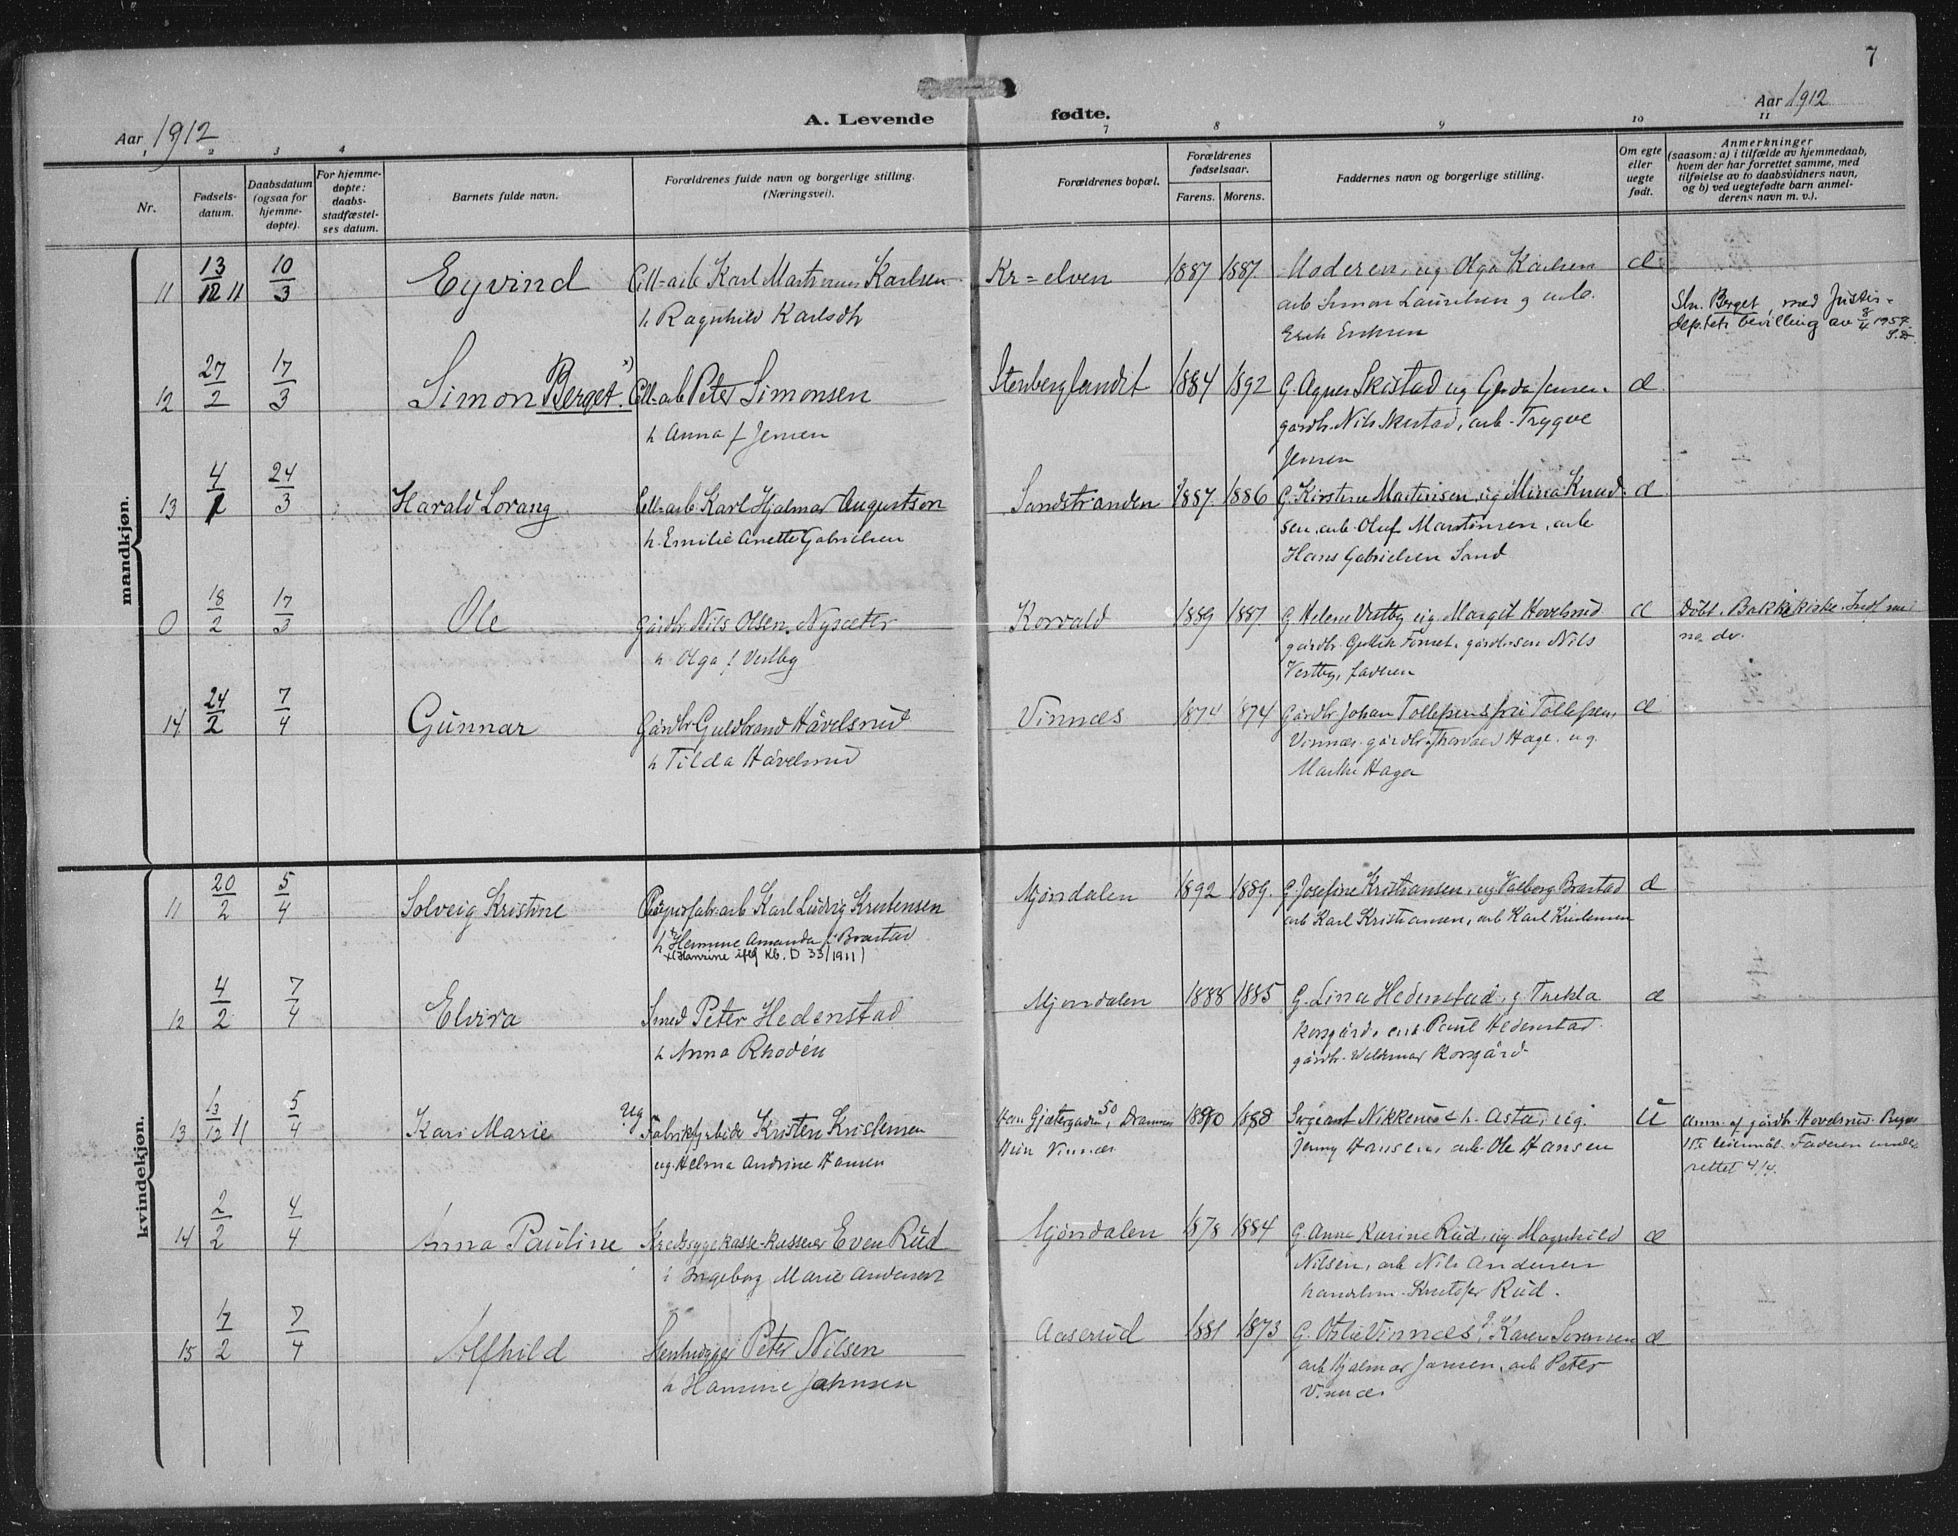 7
Aar 1912
A. Levende fødte.
Aar 1912
1 2 3 4 7 8 9 10 11
Nr.
Fødselsdatum.
Daabsdatum (ogsaa for hjemmedøpte).
For hjemmedøpte: daabsstadfæstelses datum.
Barnets fulde navn.
Forældrenes fulde navn og borgerlige stilling. (Næringsvei).
Forældrenes bopæl.
Forældrenes fødselsaar.
Farens. Morens.
Faddernes navn og borgerlige stilling.
Om egte eller uegte født.
Anmerkninger
(saasom: a) i tilfælde av hjemmedaab,
hvem der har forrettet samme, med
tilføielse av to daabsvidners navn,
og b) ved uegtefødte barn anmel-
derens navn m. v.).
mandkjøn.
11 13/12 11 10/3 Eyvind Cell-arb Karl Martinius Karlsen Kr=elven 1887 1887 Moderen, ug Olga Karlsen æ
h Ragnhild Karlsdtr arb Simon Lauritsen g arb.
Erik Eriksen
Sln. Berget, med Justis-
dep.tets bevilling av 8/4 1957.
12 27/2 17/3 Simon Berget x) Cell-arb Peter Simonsen Stenberglandet 1884 1892 G Agnes Skistad ug Gerda Jensen. æ
h Anna f Jensen gårdbr. Nils Skistad, arb. Trygve
Jensen
13 4/1 24/3 Harald Lorang Cell-arb Karl Hjalmar Augustson Sandstranden 1887. 1886 G. Kirstine Martinsen, ug Mina Knud æ
h. Emilie Anette Gabrielsen sen, arb. Oluf Martinsen, arb
Hans Gabrielsen Sand
0 18/2 17/3 Ole Gårdbr Nils Olsen Nysæter Korvald 1889 1887 G Helene Vestby ug Margit Hovelsrud æ Døbt. Bakke kirke.
h Olga f Vestby gårdbr. Gullik Fornet, gårdb.søn Nils
Vestby, faderen
14 24/2 7/4 Gunnar Gårdbr Guldbrand Håvelsrud Vinnæs 1874 1874 Gårdbr Johan Tollefsen, fru Tollefsen, æ
h Tilda Håvelsrud Vinnæs. gårdbr. Thorvald Hage. ug.
Marthe Hage
kvindekjøn.
11 20/2 5/4 Solveig Kristine Papirfabr-arb Karl Ludvig Kristensen Mjøndalen 1892 1889. G. Josefine Kristiansen, ug Valborg Brastad æ
h Hermine Amanda f. Brastad arb Karl Kristiansen, arb Karl Kristensen
x(Hanrine iflg Kb. D 33/1911)
12 4/2 7/4 Elvira Smed Peter Hedenstad Mjøndalen 1888 1885 G. Lina Hedenstad, g Thekla æ
h Anna Rhodén Korsgård, arb. Paul Hedenstad.
gårdbr. Valdemar Korsgård
13 13/12 11 5/4 Kari Marie Ug Fabrikarbeider Kristen Kristensen Han Gjætergaden 50, Drammen 1880 1888 Sergeant Nikkerud & h. Asta, ug. U Anm. af gårdbr. Hovelsrud.
ug. Helma Andrine Hansen Hun Vinnæs Jenny Hansen, arb. Ole Hansen leiermål. Faderen under-
rettet 4/4.
14 2/2 4/4 Anna Pauline Kredssygekasse-kasserer Even Rud Mjøndalen 1878 1884 G. Anne Karine Rud, ug Magnhild æ
h Ingeborg Marie Andersen Nilsen, arb Nils Andersen
handelsm. Kristofer Rud.
15 4/2 7/4 Alfhild Peter Nilsen Aaserud 1881 1873 G. Otilie Vinnæs, g. Karen Sørensen æ
h Hansine Johnsen arb Hjalmar Jansen, arb Peter
Vinnæs